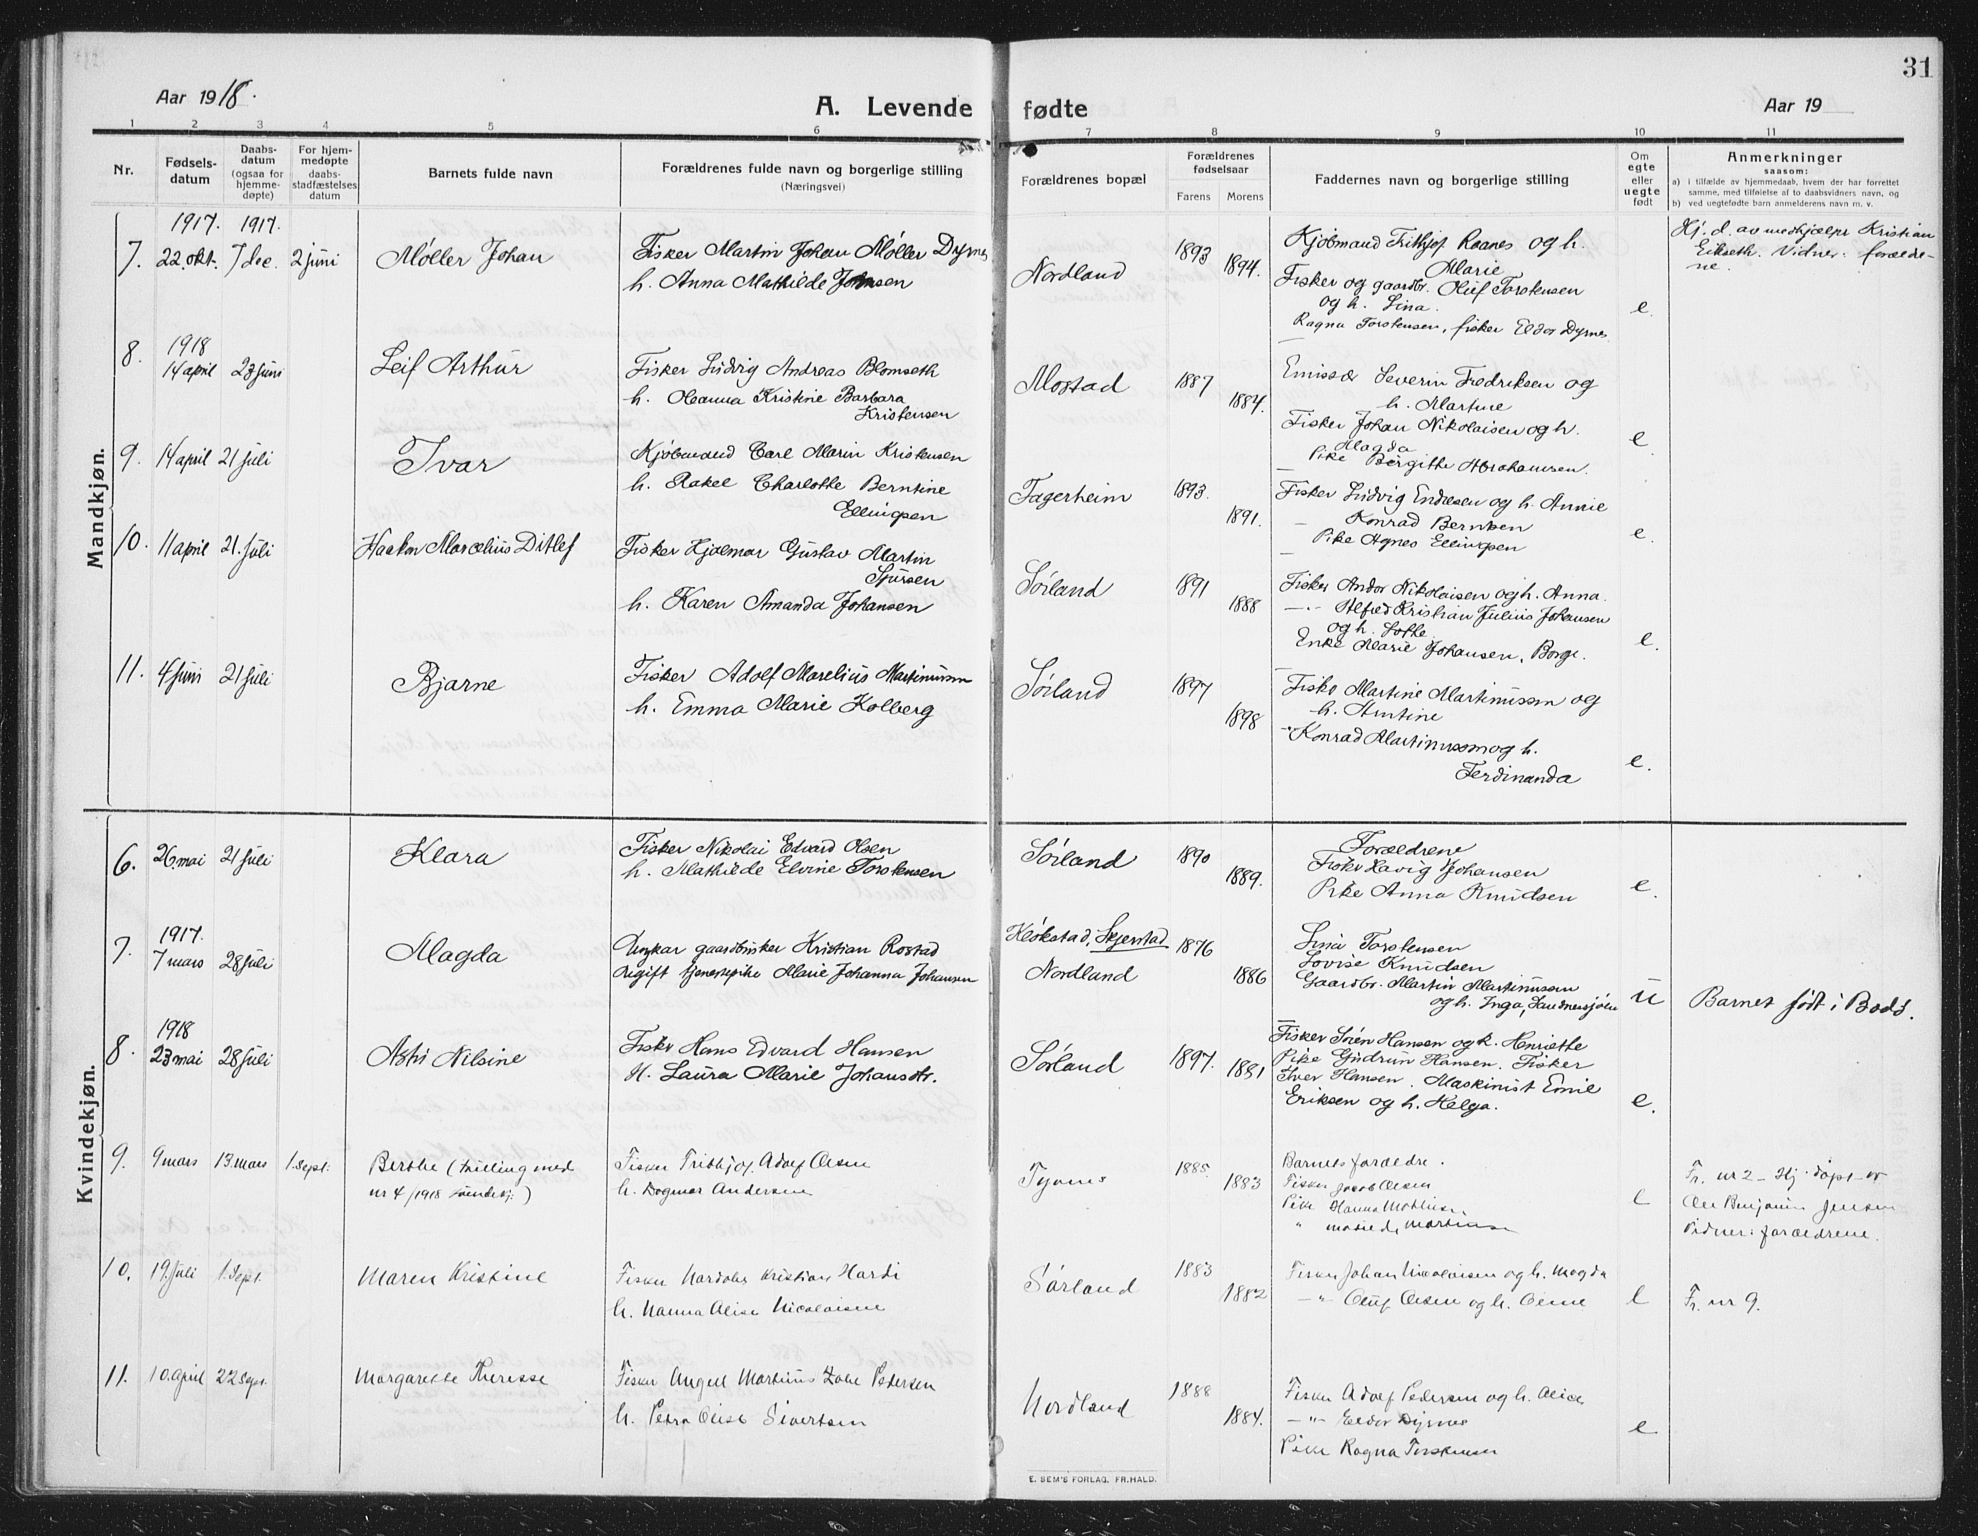 31
Aar 1918.
A. Levende fødte
Aar 19
1 2 3 4 5 6 7 8 9 10 11
Nr.
Fødsels-
datum
Daabs-
datum
(ogsaa for
hjemme-
døpte)
For hjem-
medøpte
daabs-
stadfæstelses
datum
Barnets fulde navn
Forældrenes fulde navn og borgerlige stilling
(Næringsvei)
Forældrenes bopæl
Forældrenes
fødselsaar
Farens Morens
Faddernes navn og borgerlige stilling
Om
egte
eller
uegte
født
Anmerkninger
saasom:
a) i tilfælde av hjemmedaab, hvem der har forrettet
samme, med tilføielse af to daabsvidners navn, og
b) ved uegtefødte barn anmelderens navn m. v.
Mandkjøn.
1917. 1917.
7. 22. okt. 7 dec. 2 juni
Møller Johan
Fisker Martin Johan Møller Dyrnes
h. Anna Mathilde Johnsen
Nordland
1893 1894.
Kjøbmand Frithjof Raanes og h.
Marie
Fisker og gaardbr. Oluf Torstensen
og h. Lina.
Ragna Torstensen, fisker Eldor Dyrnes
e.
Hj. d. av medhjælper Kristian
Eikseth. Vidner: forældre-
ne.
1918
8. 14 april 23 juni
Leif Arthur
Fisker Ludvig Andreas Blomseth
h. Oleanna Kristine Barbara
Kristensen
Mostad
1887 1884.
Emissær Severin Fredriksen og
h. Martine
Fisker Johan Nikolaisen og h.
Magda
Pike Bergithe Abrahamsen.
e.
9. 14 april 21 juli
Ivar
Kjøbmand Carl Marin Kristensen
h. Rakel Charlotte Berntine
Ellingsen
Fagerheim
1893. 1891.
Fisker Ludvig Endresen og h. Annie
— Konrad Berntsen
Pike Agnes Ellingsen
e.
10. 11 april 21. juli
Haakon Marcelius Ditlef
Fisker Hjalmar Gustav Martin
Sjursen
h. Karen Amanda Johansen
Sørland
1891 1888
Fisker Andor Nikolaisen og h. Anna.
—"— Alfred Kristian Julius Johansen
og h. Sofie
Enke Marie Johansen, Borge.
e.
11. 4 juni 21 juli
Bjarne
Fisker Adolf Marelius Martinussen
h. Emma Marie Kolberg
Sørland
1897 1898
Fisker Martine Martinussen og
h. Antine
" Konrad Martinussen og h.
Ferdinanda
e.
Kvindekjøn.
6. 26. mai 21 juli
Klara
Fisker Nikolai Edvard Olsen
h. Mathilde Elvine Torstensen
Sørland
1890 1889.
Forældrene
Fisker Havig Johansen
Pike Anna Knudsen
e.
1917.
7. 7 mars 28 juli
Magda
Ungkar gaardbruker Kristian Rostad
Ugift tjenestepike Marie Johanna Johansen
Skjerstad
Nordland
1876 1886
Lina Torstensen
Lovise Knudsen
Gaardbr. Martin Martinussen
og h. Inga, Sandnessjøen
u
Barnet født i Bodø.
1918
8. 23 mai 28 juli
Astri Nilsine
Fisker Hans Edvard Hansen
H. Laura Marie Johansdtr.
Sørland
1897. 1891
Fisker Søren Hansen og h. Henriette
Pike Gudrun Hansen. Fisker
Iver Hansen. Maskinist Emil
Eriksen og h. Helga.
e.
9. 9 mars 13. mars 1. sept.
Berthe (trilling med
nr 4/1918 )
Fisker Frithjof Adolf Olsen
h. Dagmar Andersen
Tyvnes
1885. 1883
Barnets forældre.
Fisker Jacob Olsen
Pike Hanna Mathisen
" Matilde Martinsen
e
Fr. nr 2 – Hj. døpt av
Ole Benjamin Jensen
Vidner: forældrene.
10. 19. juli 1. Sept.
Maren Kristine
Fisker Nordahl Kristian Hardi
h. Hanna Alise Nicolaisen
Sørland
1883 1882
Fisker Johan Nicolaisen og h. Magda
—"— Oluf Olsen og h. Oline
e
Fr. nr 9.
11. 10. april 22 sept.
Margarethe Therese
Fisker Angell Martinus Zahl Pedersen
h. Petra Oline Sivertsen
Nordland
1888 1884.
Fisker Adolf Pedersen og h. Alice
—"— Eldor Dyrnes
Pike Ragna Torstensen
e
E. SEM'S FORLAG, FR.HALD.